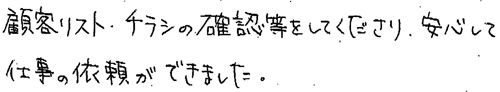 顧客リスト・チラシの確認等をしてくださり、安心して
仕事の依頼ができました。